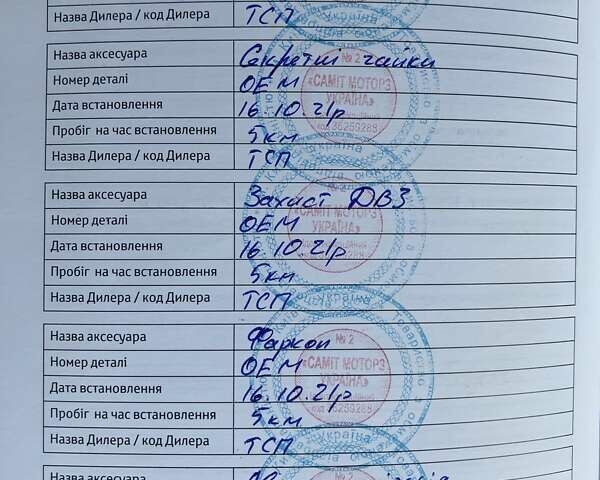 Назва Дилера / код Дилера ТСП
Назва аксесуара Секретні гайки
Номер деталі ОЕМ
Дата встановлення 16.10.21р
Пробіг на час встановлення 5км
Назва Дилера / код Дилера ТСП
Назва аксесуара Захист ДВЗ
Номер деталі ОЕМ
Дата встановлення 16.10.21р
Пробіг на час встановлення 5км
Назва Дилера / код Дилера ТСП
Назва аксесуара Фаркоп
Номер деталі ОЕМ
Дата встановлення 16.10.21р
Пробіг на час встановлення 5км
Назва Дилера / код Дилера ТСП
Назва аксесуара
Україна
№ 2
«САМІТ МОТОРЗ
УКРАЇНА»
код 36259288
Україна
«САМІТ МОТОРЗ
УКРАЇНА»
Україна
№ 2
«САМІТ МОТОРЗ
УКРАЇНА»
код 36259288
Україна